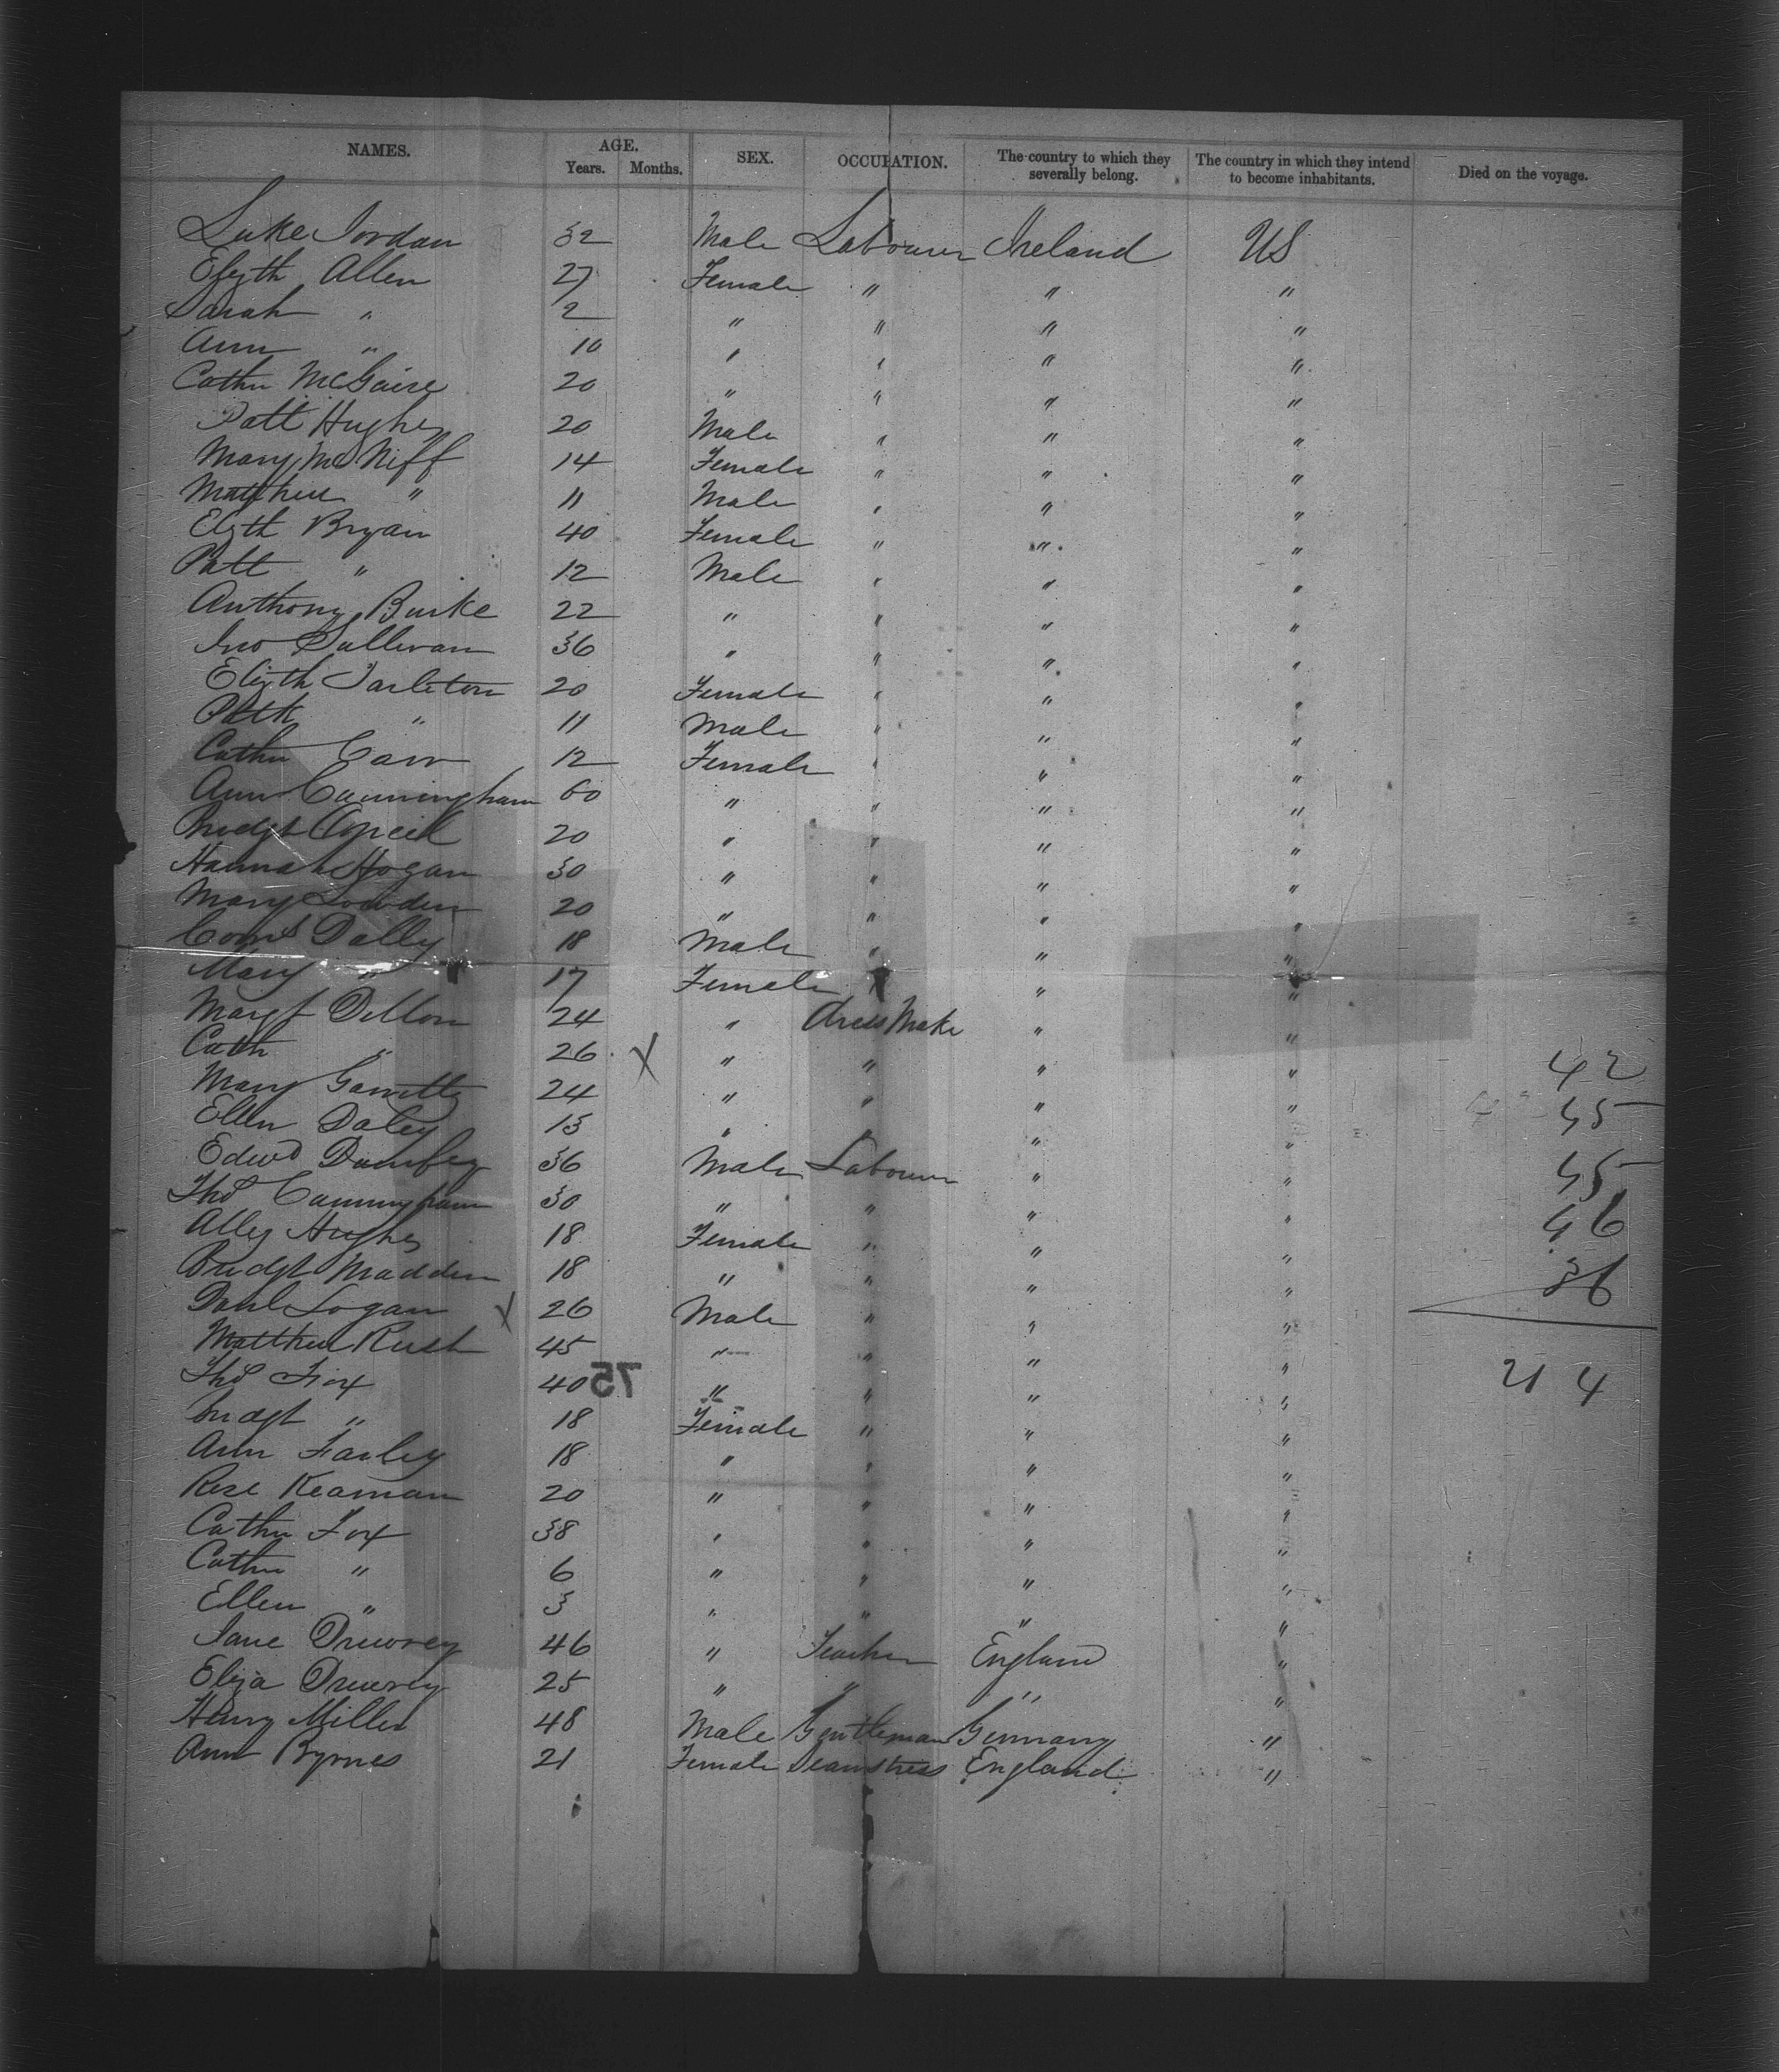 NAMES. AGE. Years. Months. SEX. OCCUPATION. The country to which they severally belong. The country in which they intend to become inhabitants. Died on the voyage.
Luke Jordan 32 Male Labourer Ireland US
Elizth Allen 27 Female " " "
Sarah " 2 " " " "
Ann " 10 " " " "
Cathn McGaire 20 " " " "
Patt Hughes 20 Male " " "
Mary McNiff 14 Female " " "
Matthew " 11 Male " " "
Elizth Bryan 40 Female " " "
Patt " 12 Male " " "
Anthony Burke 22 " " " "
Jno Sullivan 36 " " " "
Elizth Tarleton 20 Female " " "
Patk " 11 Male " " "
Cathn Carr 12 Female " " "
Ann Cunningham 60 " " " "
Bridgt 20 " " " "
Hannah Hogan 30 " " " "
Mary Lowden 20 " " " "
Corns Dally 18 Male " " "
Mary " 17 Female " " "
Margt Dillon 24 " Dress Make " "
Cath " 26 X " " " "
42
Mary 24 " " " "
Ellen Daley 13 " " " "
45
Edwd 36 Male Labourer " "
45
Thos Cunningham 30 " " " "
Alley Hughes 18 Female " " "
46
Bridgt Madden 18 " " " "
36
Danl Logan X 26 Male " " "
Matthew Rush 45 " " " "
Thos Fox 40 75 " " " "
214
Bridgt " 18 Female " " "
Ann Farley 18 " " " "
Rose Keaman 20 " " " "
Cathn Fox 38 " " " "
Cathn " 6 " " " "
Ellen " 3 " " " "
Jane Druwrey 46 " Teacher England "
Eliza Druwrey 25 " " " "
Henry Miller 48 Male Gentleman Germany "
Ann Byrnes 21 Female Seamstress England "